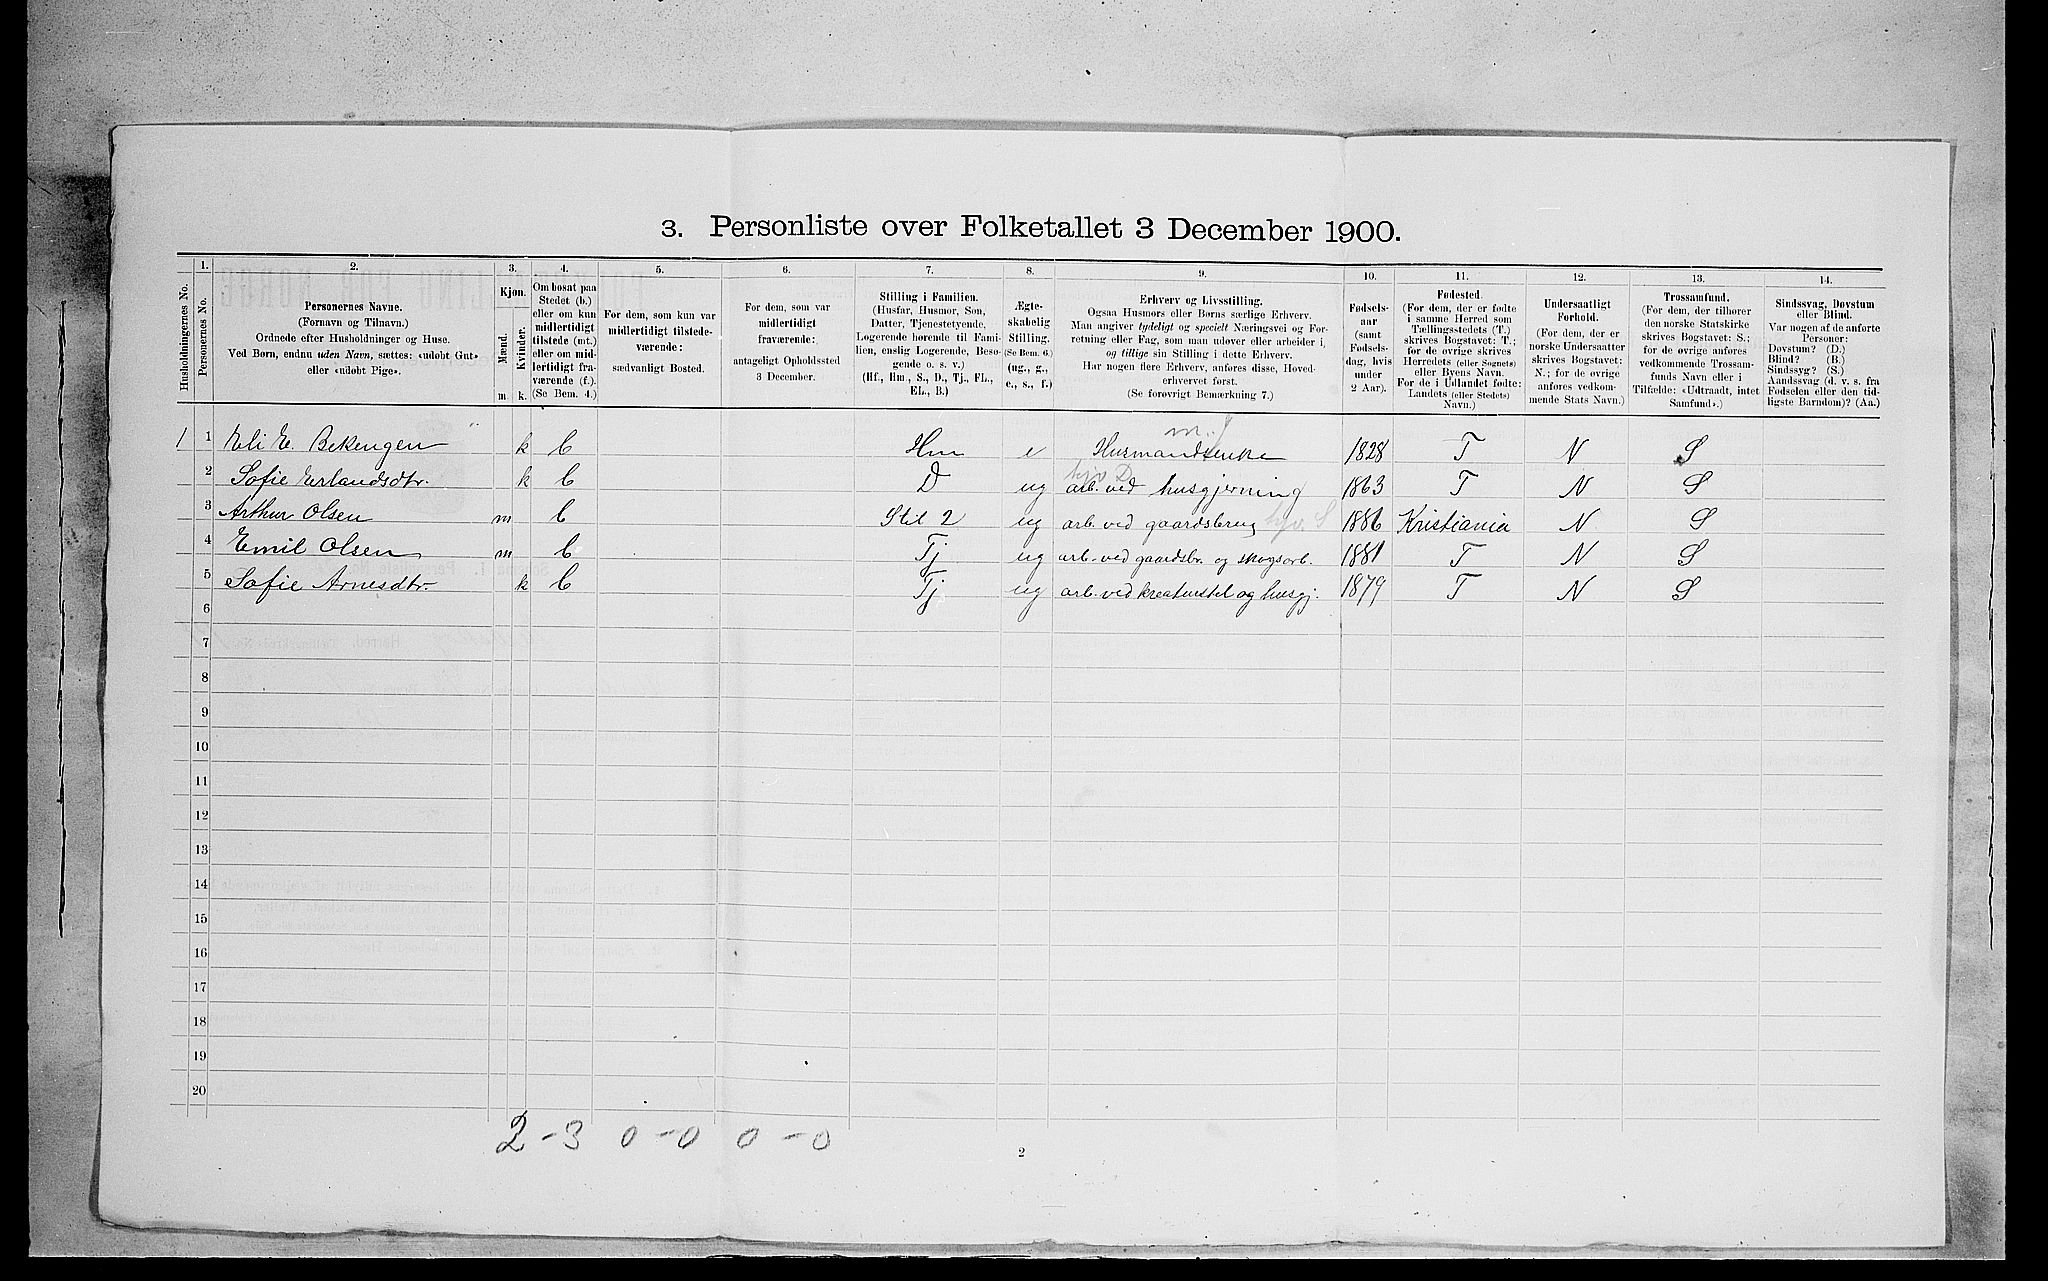 3. Personliste over Folketallet 3 December 1900.
1. 2. 3. 4. 5. 6. 7. 8. 9. 10. 11. 12. 13. 14.
Husholdningernes No.
Personernes No.
Personernes Navne.
(Fornavn og Tilnavn.)
Ordnede efter Husholdninger og Huse.
Ved Børn, endnu uden Navn, sættes: «udøbt Gut»
eller «udøbt Pige».
Kjøn.
Mænd.
Kvinder.
m. k.
Om bosat paa
Stedet (b.)
eller om kun
midlertidigt
tilstede (mt.)
eller om mid-
lertidigt fra-
værende (f.).
(Se Bem. 4.)
For dem, som kun var
midlertidigt tilstede-
værende:
sædvanligt Bosted.
For dem, som var
midlertidigt
fraværende:
antageligt Opholdssted
3 December.
Stilling i Familien.
(Husfar, Husmor, Søn,
Datter, Tjenestetyende,
Logerende hørende til Fami-
lien, enslig Logerende, Besø-
gende o. s. v.)
(Hf., Hm., S., D., Tj., FL.,
EL., B.)
Ægte-
skabelig
Stilling.
(Se Bem. 6.)
(ug., g.,
e., s., f.)
Erhverv og Livsstilling.
Ogsaa Husmors eller Børns særlige Erhverv.
Man angiver tydeligt og specielt Næringsvei og For-
retning eller Fag, som man udøver eller arbeider i,
og tillige sin Stilling i dette Erhverv.
Har nogen flere Erhverv, anføres disse, Hoved-
erhvervet først.
(Se forøvrigt Bemærkning 7.)
Fødsels-
aar
(samt
Fødsels-
dag, hvis
under
2 Aar).
Fødested.
(For dem, der er fødte
i samme Herred som
Tællingsstedets (T.)
skrives Bogstavet: T.;
for de øvrige skrives
Herredets (eller Sognets)
eller Byens Navn.
For de i Udlandet fødte:
Landets (eller Stedets)
Navn.)
Undersaatligt
Forhold.
(For dem, der er
norske Undersaatter
skrives Bogstavet:
N.; for de øvrige
anføres vedkom-
mende Stats Navn.)
Trossamfund.
(For dem, der tilhører
den norske Statskirke
skrives Bogstavet: S.;
for de øvrige anføres
vedkommende Trossam-
funds Navn eller i
Tilfælde: «Udtraadt, intet
Samfund».)
Sindssvag, Døvstum
eller Blind.
Var nogen af de anførte
Personer:
Døvstum? (D.)
Blind? (B.)
Sindssyg? (S.)
Aandssvag (d. v. s. fra
Fødselen eller den tid-
ligste Barndom)? (Aa.)
1 1 Eli E. Bekengen k b Hm e Husmandsenke 1828 T N S
2 Sofie Erlandsdtr. k b D ug arb. ved husgjerning 1863 T N S
3 Arthur Olsen m b Stil 2 ug arb. ved gaardsbrug 1886 Kristiania N S
4 Emil Olsen m b Tj ug arb. ved gaardsbr. og skogsarb. 1881 T N S
5 Sofie Arnesdtr. k b Tj ug arb. ved kreaturstel og husgj. 1879 T N S
6
7
8
9
10
11
12
13
14
15
16
17
18
19
20
2 - 3 0 - 0 0 - 0
2